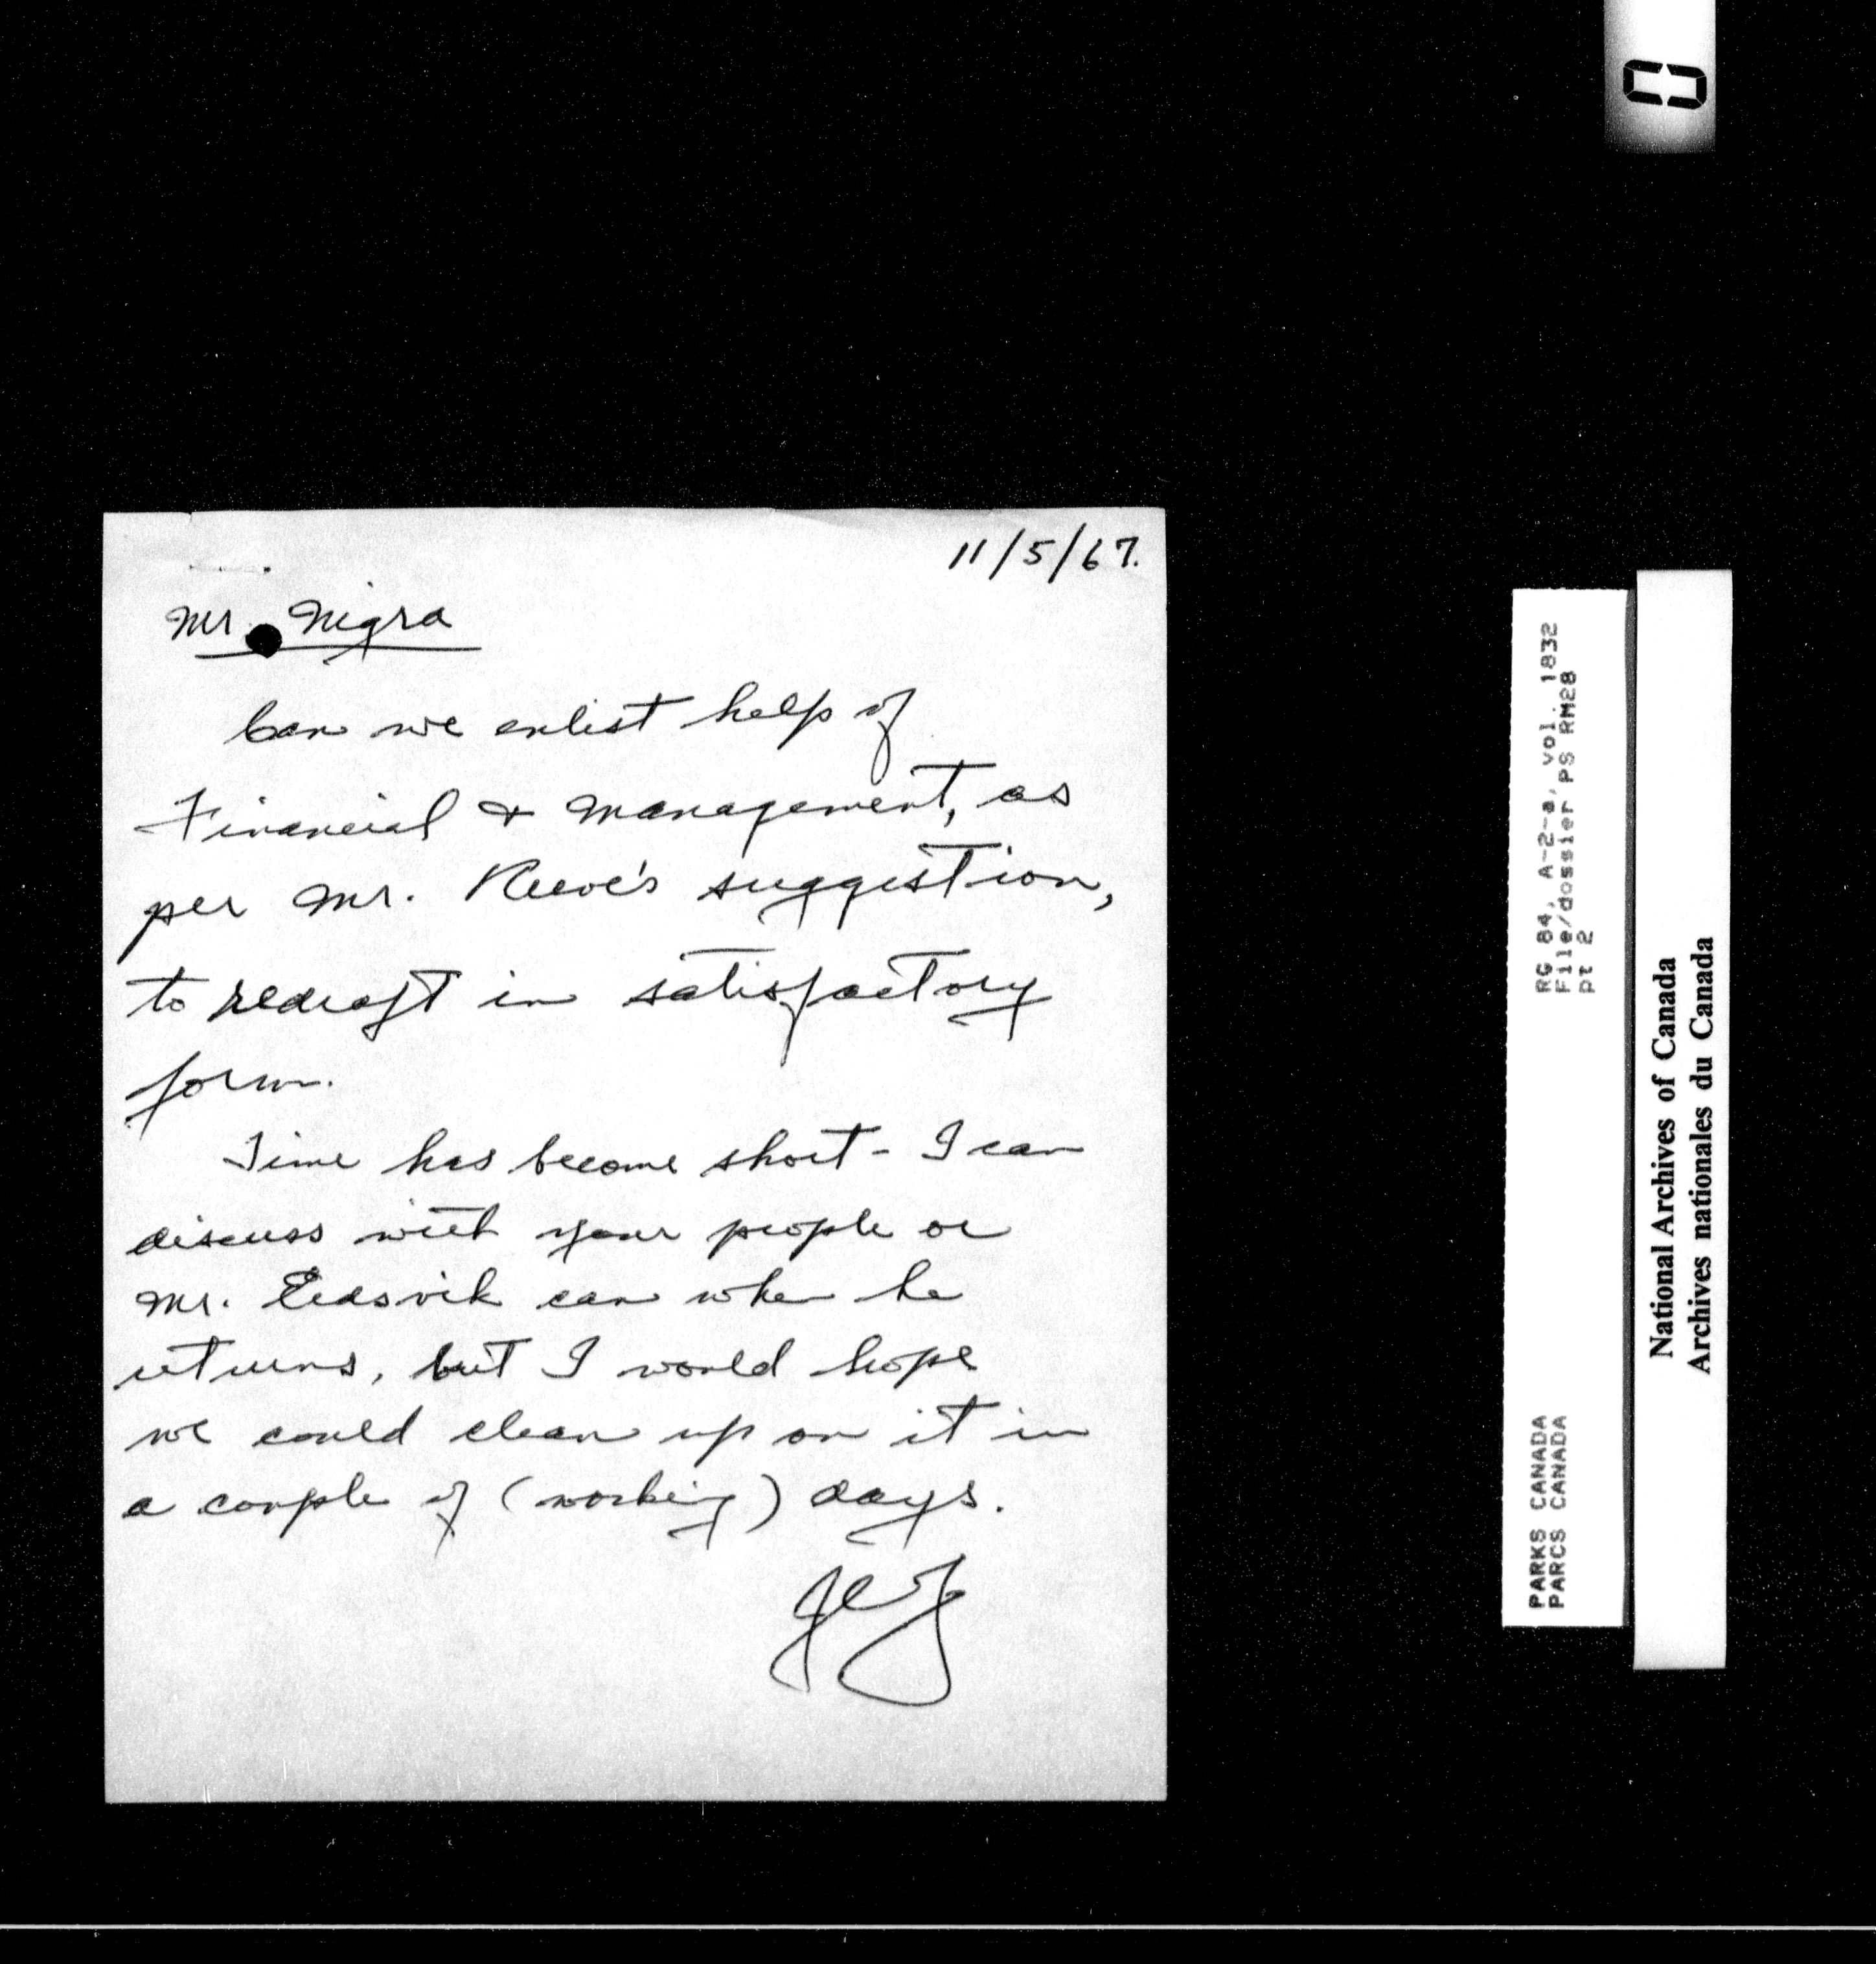 11/5/67.
Mr. Nigra
Can we enlist help of
Financial & Management, as
per Mr. Reeve's suggestion,
to redraft in satisfactory
form.
Time has become short - I can
discuss with your people or
Mr. Eidsvik can when he
returns, but I would hope
we could clean up on it in
a couple of (working) days.
RG 84, A-2-a, vol. 1832
File/dossier PS RM28
pt 2
PARKS CANADA
PARCS CANADA
National Archives of Canada
Archives nationales du Canada